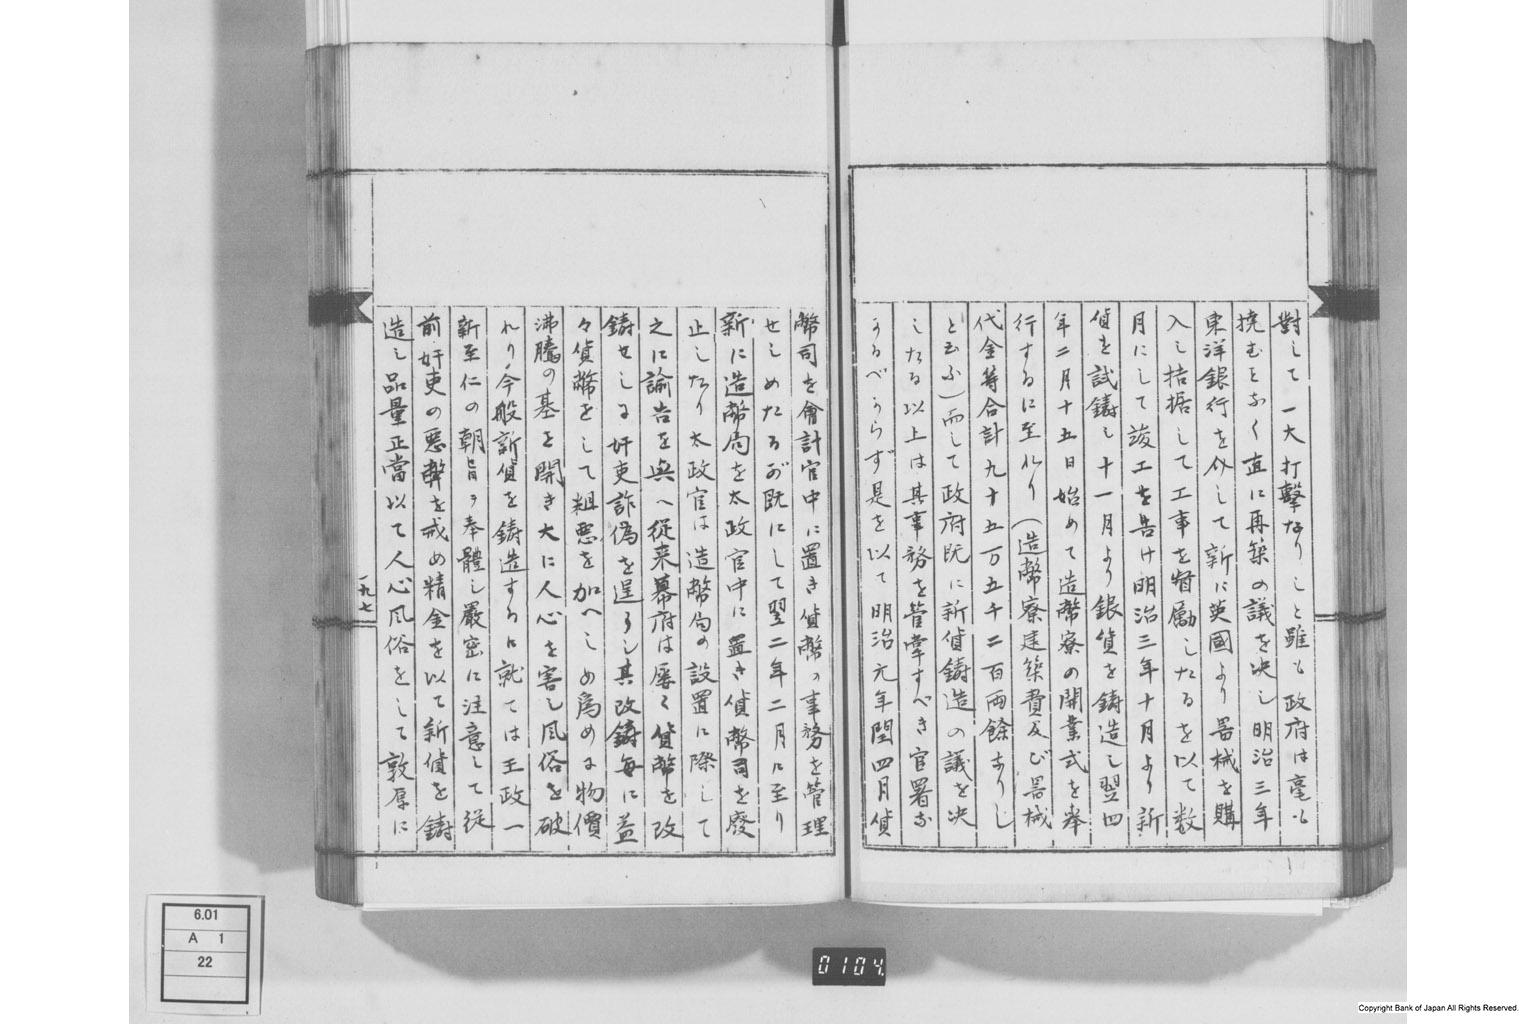 對して一大打擊なりしと雖も政府は毫も
撓むをなく直に再築の議を决し明治三年
東洋銀行を介して新に英國より器械を購
入し拮据して工事を督勵したるを以て数
月にして竣工を告け明治三年十月より新
貨を試鑄し十一月より銀貨を鑄造し翌四
年二月十五日始めて造幣寮の開業式を舉
行するに至れり(造幣寮建築費及び器械
代金等合計九十五万五千二百両餘なりし
と云ふ)而して政府既に新貨鑄造の議を决
したる以上は其事務を管掌すべき官署な
かるべからず是を以て明治元年閏四月貨
幣司を會計官中に置き貨幣の事務を管理
せしめたるが既にして翌二年二月に至り
新に造幣局を太政官中に置き貨幣司を廢
止したり太政官は造幣局の設置に際して
之に諭告を與へ從来幕府は屡〻貨幣を改
鑄せしに奸吏詐偽を逞うし其改鑄毎に益
々貨幣をして粗悪を加へしめ爲めに物價
沸騰の基を開き大に人心を害し風俗を破
れり今般新貨を鑄造するに就ては王政一
新至仁の朝旨ヲ奉體し嚴密に注意して從
前奸吏の悪弊を戒め精金を以て新貨を鑄
造し品量正當以て人心風俗をして敦厚に
一九七
6.01
A 1
22
0104
Copyright Bank of Japan All Rights Reserved.